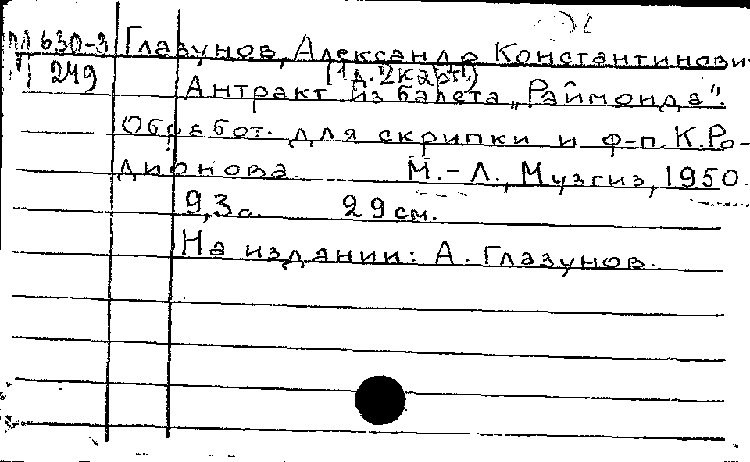 М 630-3 Глазунов, Александр Константинови
П 249 (1 д. II карт.)
Антракт из балета „Раймонда".
Обработ. для скрипки и ф-п. К. Ро-
дионова М.-Л., Музгиз, 1950.
9,3 с. 29 см.
На издании: А. Глазунов.